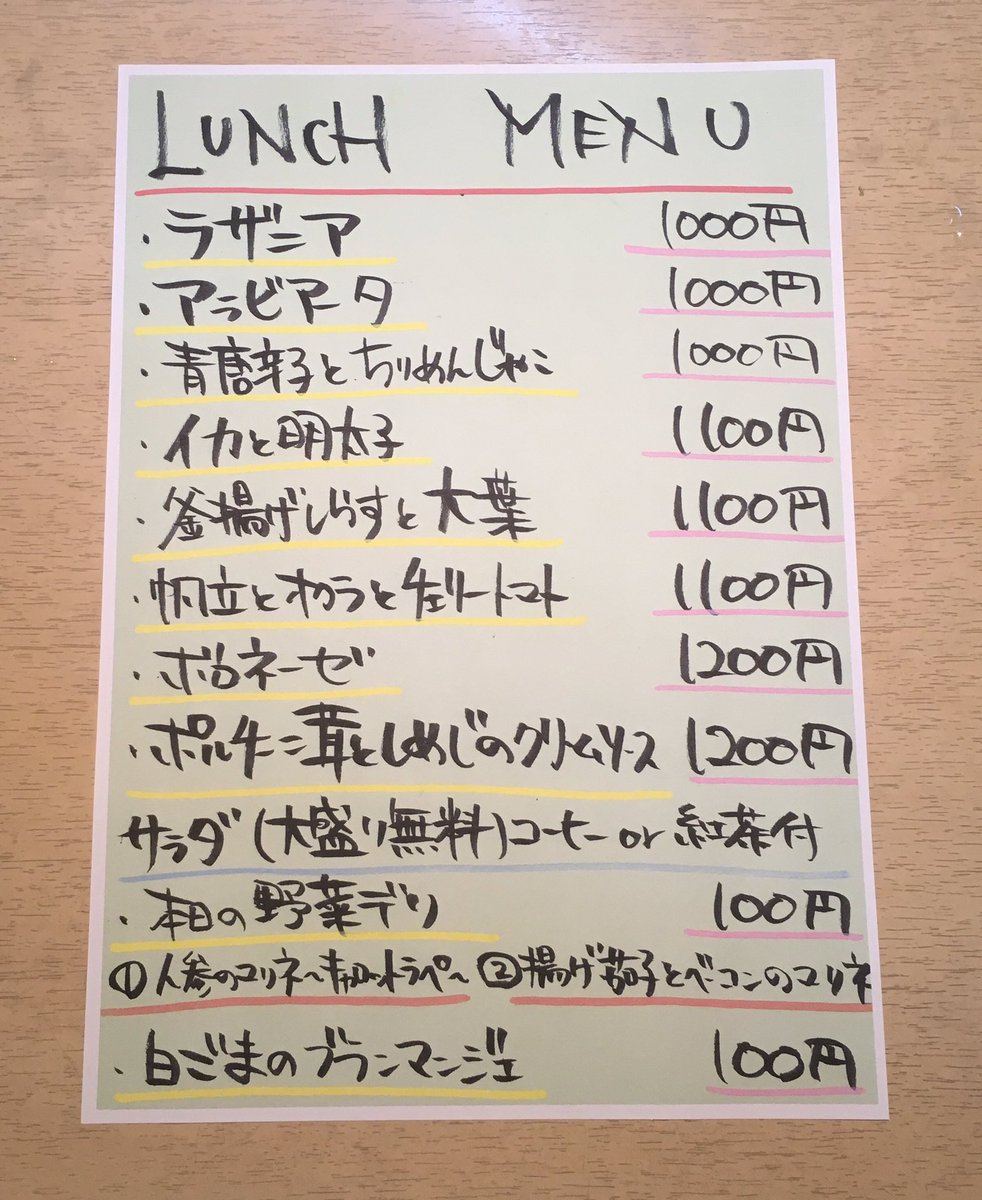 LUNCH MENU
・ラザニア 1000円
・アラビアータ 1000円
・青唐辛子とちりめんじゃこ 1000円
・イカと明太子 1100円
・釜揚げしらすと大葉 1100円
・帆立とオクラとチェリートマト 1100円
・ボロネーゼ 1200円
・ポルチーニ茸としめじのクリームソース 1200円
サラダ(大盛り無料)コーヒー or 紅茶付
・本日の野菜デリ 100円
①人参のマリネ〜キャロットラペ〜 ②揚げ茄子とベーコンのマリネ
・白ごまのブランマンジェ 100円